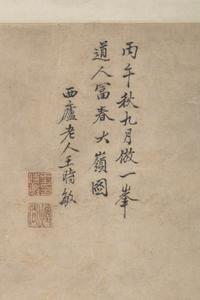 丙午秋九月倣一峯
道人富春大嶺圖
西廬老人王時敏